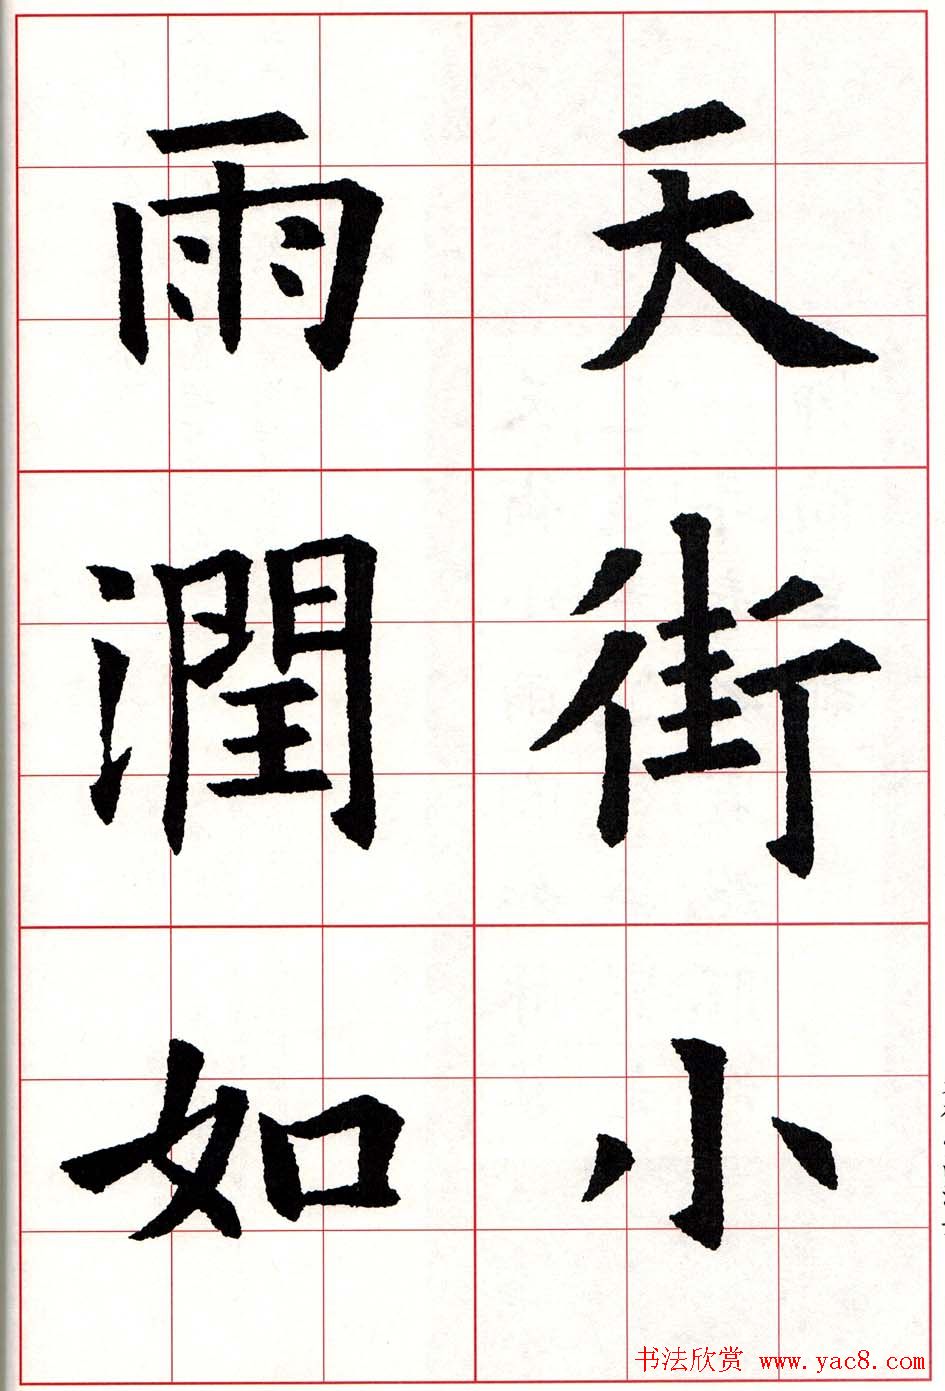 天街小
雨潤如
书法欣赏 www.yac8.com